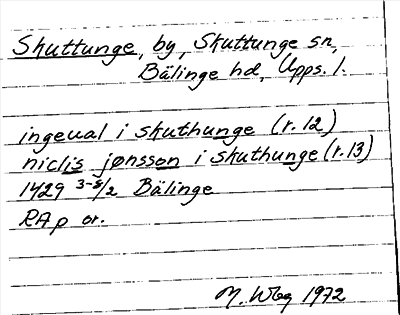 Skuttunge, by, Skuttunge sn,
Bälinge hd, Upps. l.
ingeual i skuthunge (r. 12)
niclis jønsson i skuthunge (r. 13)
1429 3-5/2 Bälinge
RAp or.
M. Wbg 1972